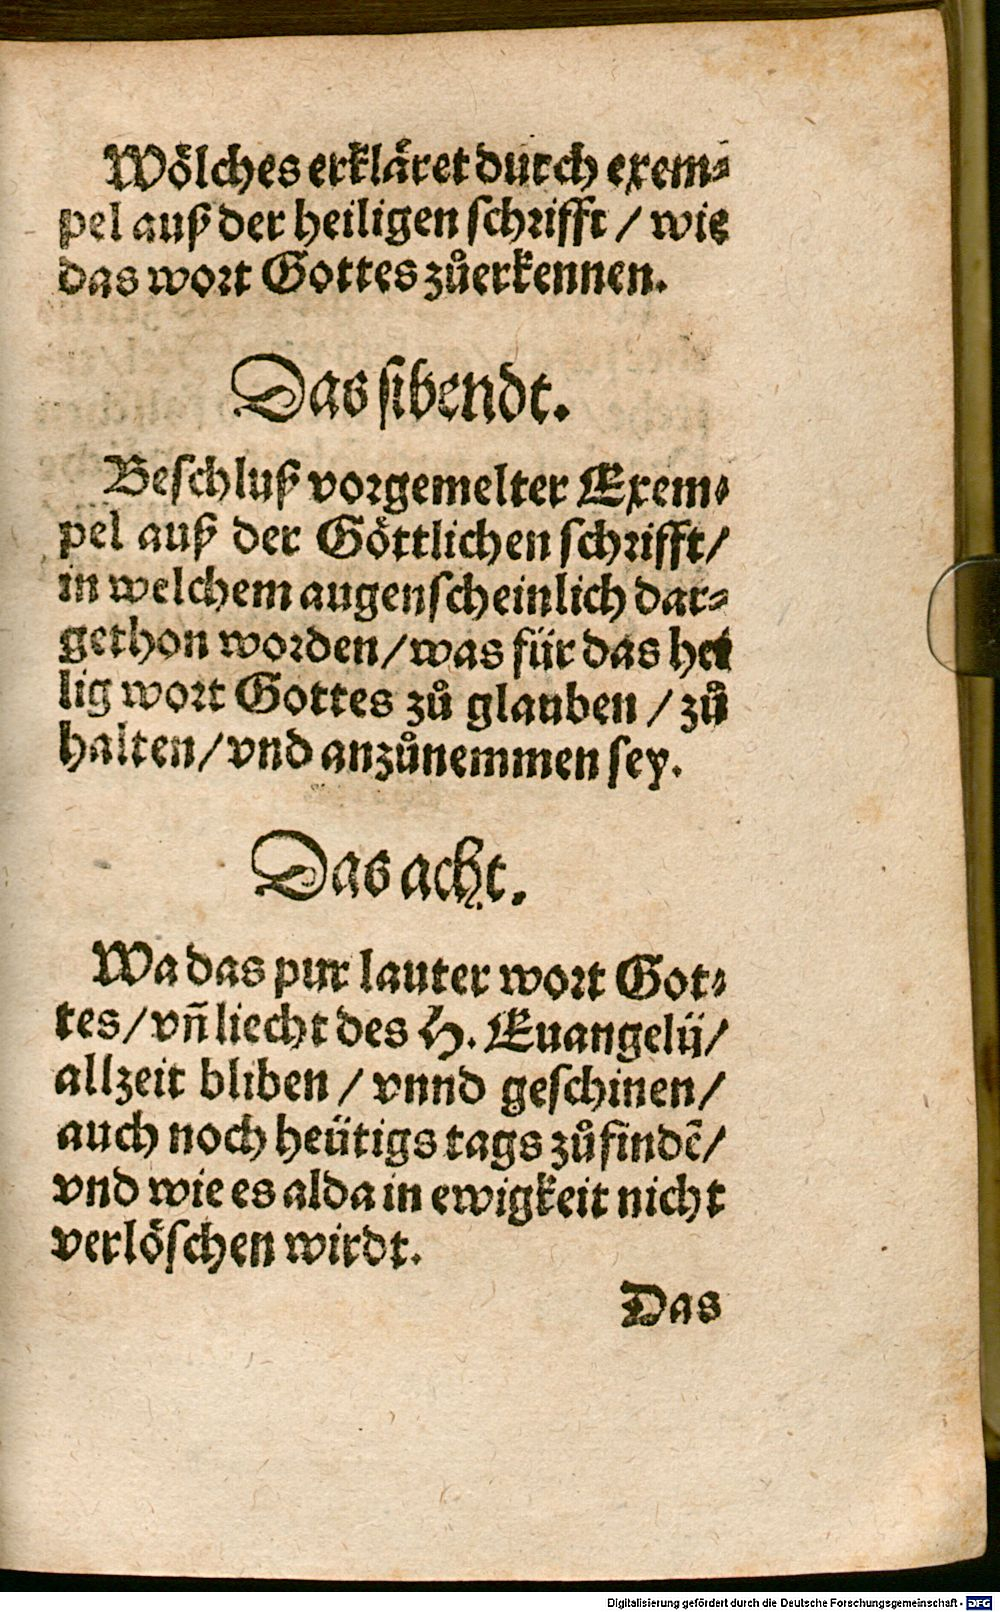 Wölches erkläret durch exem⸗
pel auß der heiligen schrifft / wie
das wort Gottes zůerkennen.
Das sibendt.
Beschluß vorgemelter Exem⸗
pel auß der Göttlichen schrifft/
in welchem augenscheinlich dar⸗
gethon worden/was für das hei
lig wort Gottes zů glauben / zů
halten/vnd anzůnemmen sey.
Das acht.
Wa das pur lauter wort Got⸗
tes/vñ liecht des H. Euangelij/
allzeit bliben / vnnd geschinen/
auch noch heütigs tags zůfindẽ/
vnd wie es alda in ewigkeit nicht
verlöschen wirdt.
Das
Digitalisierung gefördert durch die Deutsche Forschungsgemeinschaft - DFG